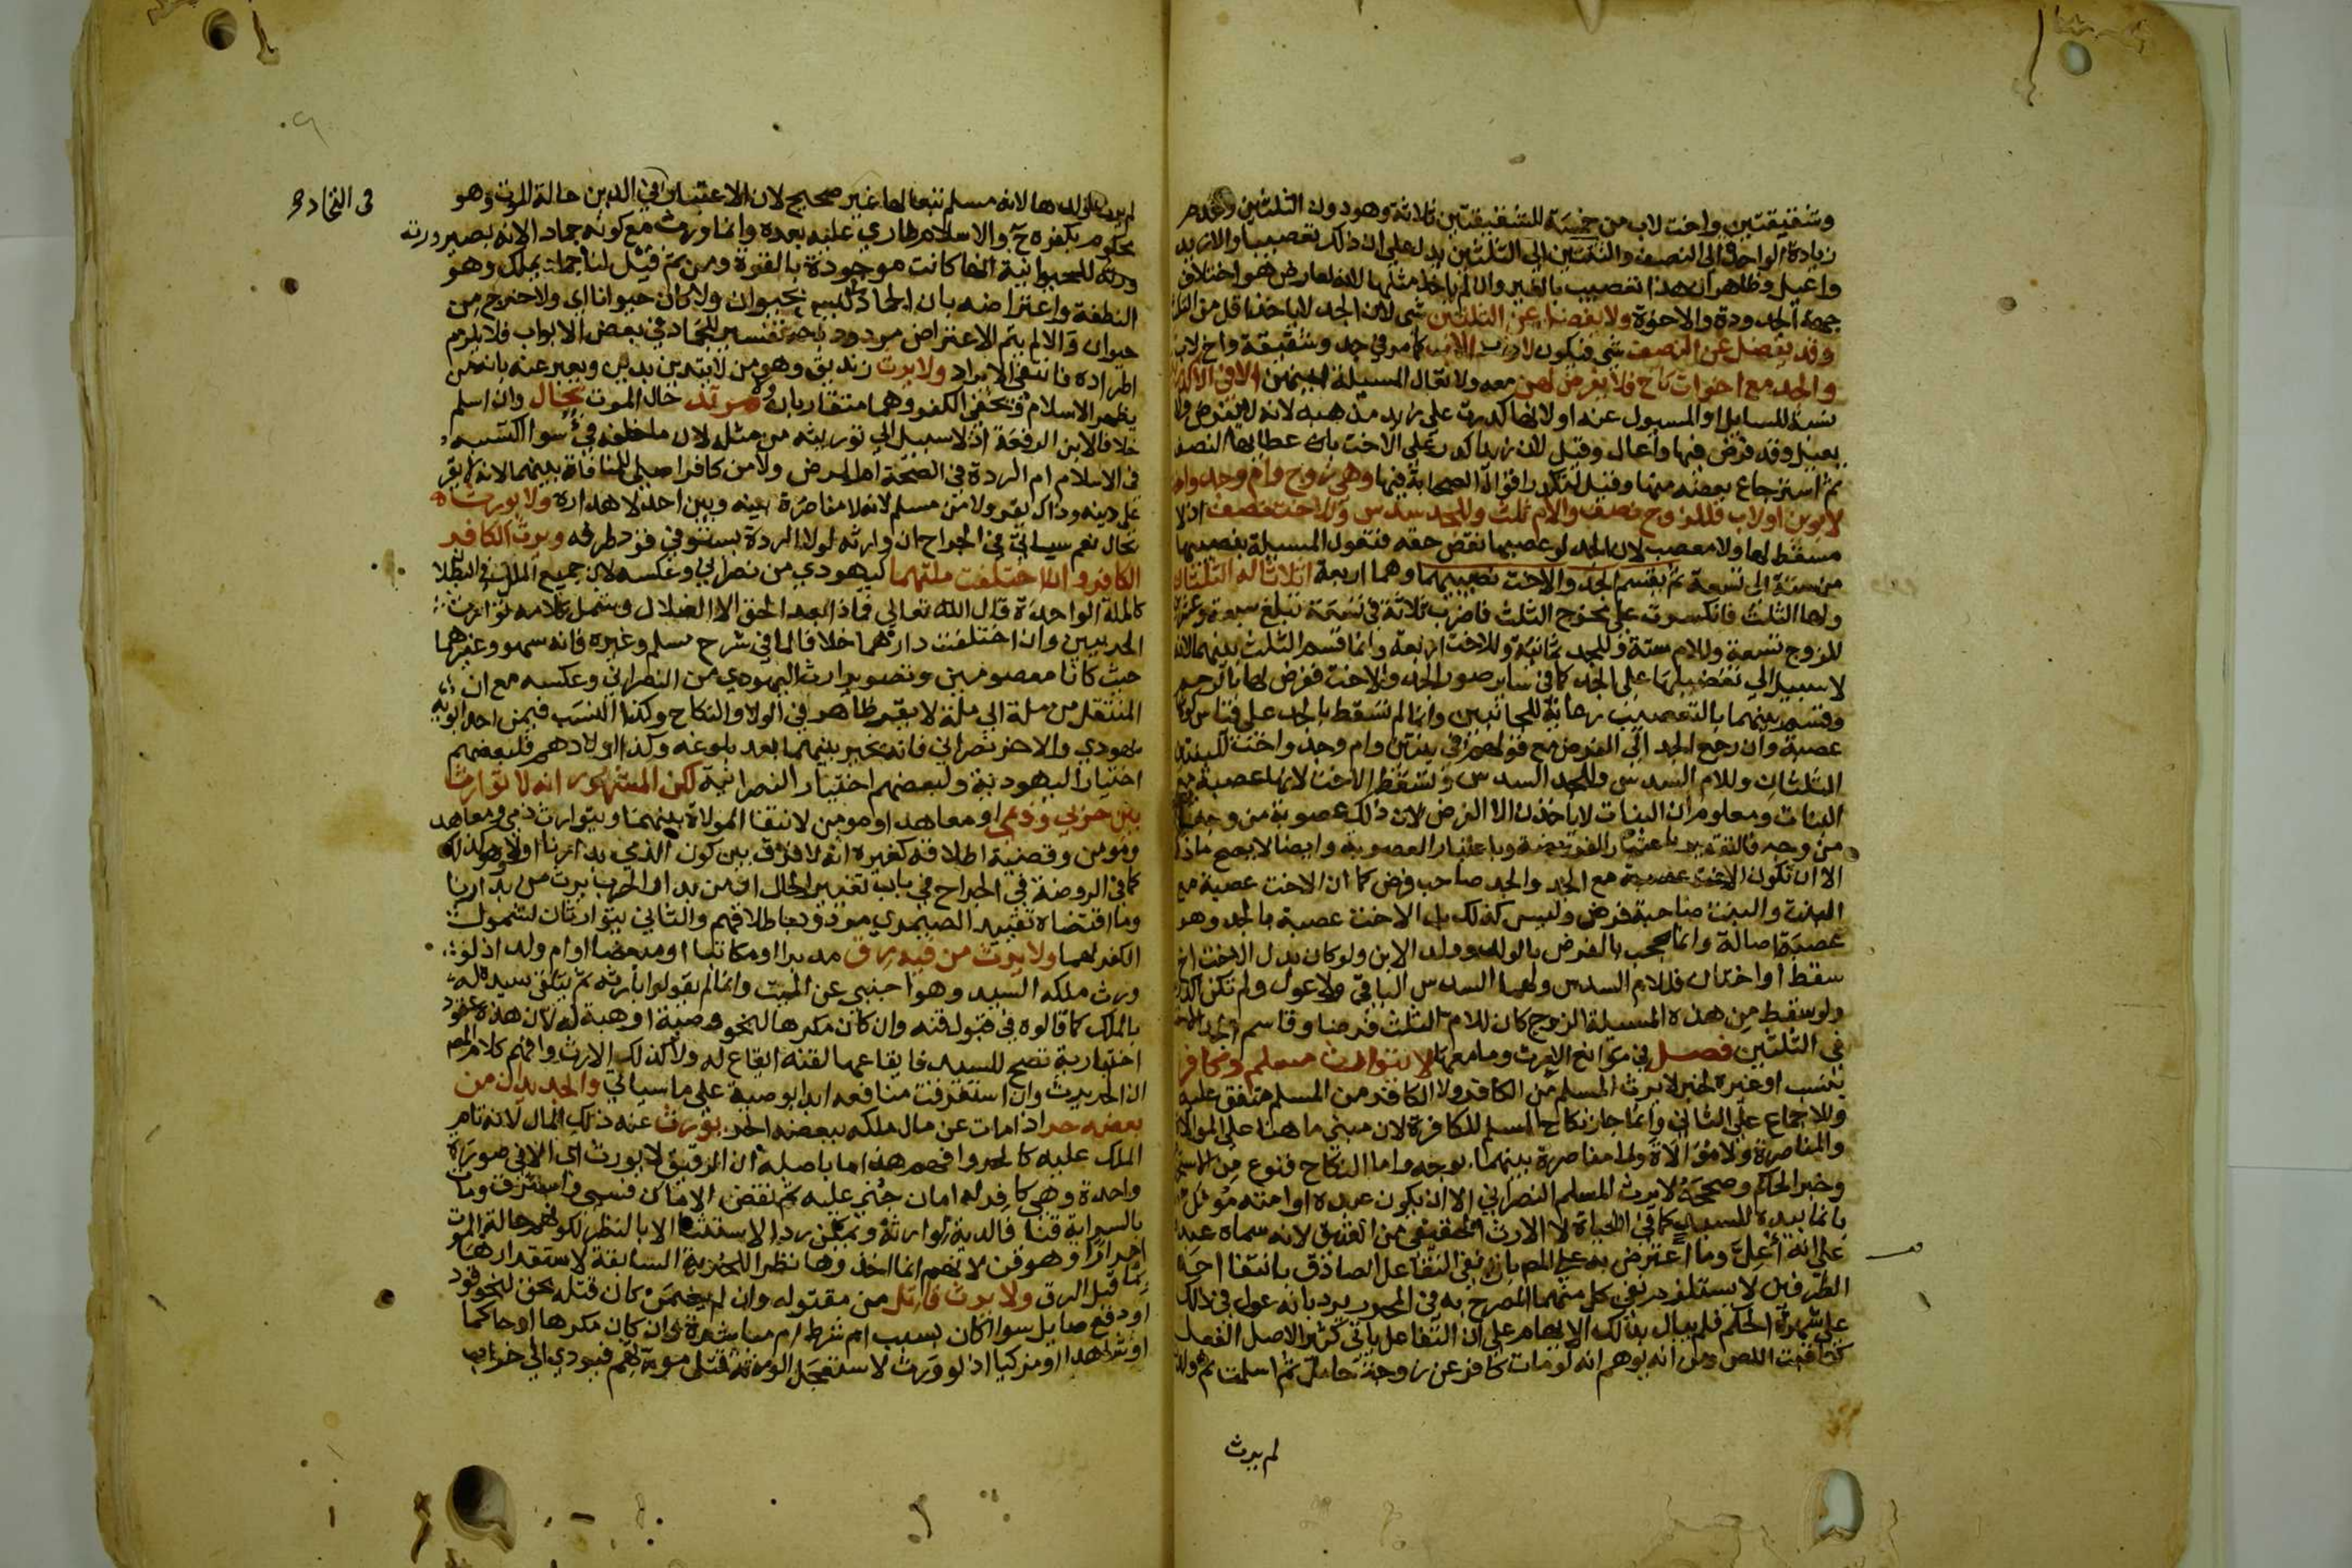 وشقيقتين واخت لاب من خمسة للشقيقتين ثلاثة وهو دون الثلثين وعدم
زيادة الواحدة الى النصف والثنتين الى الثلثين يدل على ان ذلك تعصيب والا زيد
واعيل وظاهر ان هذا تعصيب بالغير وان لم ياخذ مثلها لانه لعارض هو اختلاف
جهة الجدودة والاخوة ولا يفضل عن الثلثين شي لان الجد لا ياخذ اقل من الثلث
وقد يفضل عن النصف شي فيكون لاولاد الاب كما مر في جد وشقيقة واخ لاب
والجد مع اخوات كاخ فلا يفرض لهن معه ولا تعال المسيلة بسببهن الا في الاكدرية
نسبة للسايل او المسيول عنه او لانها كدرت على زيد مذهبه لانه لا يفرض ولا
يعيل وقد فرض فيها واعال وقيل لان زيدا كدر على الاخت باعطايها النصف
ثم استرجاع بعضه منها وقيل لتكدر اقوال الصحابة فيها وهي زوج وام وجد واخت
لابوين او لاب فللزوج نصف وللام ثلث وللجد سدس وللاخت نصف اذ لا
مسقط لها ولا معصب لان الجد لو عصبها نقص حقه فتعول المسيلة بنصيبها
من ستة الى تسعة ثم يقتسم الجد والاخت نصيبيهما وهما اربعة اثلاثا له الثلثان
ولها الثلث فانكسرت على مخرج الثلث فاضرب ثلاثة في تسعة تبلغ سبعة وعشرين
للزوج تسعة وللام ستة وللجد ثمانية وللاخت اربعة وانما قسم الثلث بينهما لانه
لا سبيل الى تفضيلها على الجد كما في ساير صور الجد والاخت ففرض لها بالرحم
وقسم بينهما بالتعصيب رعاية للجانبين وانما لم تسقط بالجد على قياس كونها
عصبة وان رجع الجد الى الفرض مع قولهم في بنتين وام وجد واخت للبنتين
الثلثان وللام السدس وللجد السدس وتسقط الاخت لانها عصبة مع
البنات ومعلوم ان البنات لا ياخذن الا الفرض لان ذلك عصوبة من وجه وفريضة
من وجه فالتقدير باعتبار الفريضة وباعتبار العصوبة وايضا لا يصح ماذكر
الا ان تكون الاخت عصبة مع الجد والجد صاحب فرض كما ان الاخت عصبة مع
البنت والبنت صاحبة فرض وليس كذلك بل الاخت عصبة بالجد وهو
عصبة اصالة وانما يحجب بالفرض بالولد وولد الابن ولو كان بدل الاخت اخ
سقط او اختان فللام السدس ولهما السدس الباقي ولا عول ولم تكن اكدرية
ولو سقط من هذه المسيلة الزوج كان للام الثلث فرضا وقاسم الجد الاخت
في الثلثين فصل في موانع الارث وما معها لا يتوارث مسلم وكافر
بنسب او غيره لخبر لا يرث المسلم من الكافر ولا الكافر من المسلم متفق عليه
وللاجماع على الثاني وانما جاز نكاح المسلم للكافرة لان مبنى ما هنا على الموالاة
والمناصرة ولا موالاة ولا مناصرة بينهما بوجه واما النكاح فنوع من الاستخدام
وخبر الحاكم وصححه لا يرث المسلم النصراني الا ان يكون عبده او امته مؤول
بان ما بيده للسيد كما في الحياة لا الارث الحقيقي من العتيق لانه سماه عبده
على انه اعل وما اعترض به على المص بان نفى التفاعل الصادق بانتفا احد
الطرفين لا يستلزم نفي كل منهما المصرح به في المحرر يرد بانه عول في ذلك
على شهرة الحكم فلم يبال بذلك الايهام على ان التفاعل ياتي كثيرا لاصل الفعل
كعاقبت اللص ومن انه يوهم انه لو مات كافر عن زوجة حامل ثم اسلمت ثم ولدت
لم يرث
لم يرث ولدها لانه مسلم تبعا لها غير صحيح لان الاعتبار في الدين حالة الموت وهو
محكوم بكفره ح والاسلام طاري عليه بعده وانما ورث مع كونه جمادا لانه بصيرورته
في التخادم
للحيوانية انها كانت موجودة بالقوة ومن ثم قيل لنا جماد يملك وهو
النطفة واعتراضه بان الجماد ما ليس بحيوان ولا كان حيوانا اي ولا خرج من
حيوان والا لم يتم الاعتراض مردود بانه تفسير للجماد في بعض الابواب فلا يلزم
اطراده فانتفى الايراد ولا يرث زنديق وهو من لا يتدين بدين ويعبر عنه بانه من
يظهر الاسلام ويخفي الكفر وهما متقاربان ومرتد حال الموت بحال وان اسلم
خلافا لابن الرفعة اذ لا سبيل الى توريثه من مثله لان ما خلفه فيء سوا اكتسبه
في الاسلام ام الردة في الصحة ام المرض ولا من كافر اصلي للمنافاة بينهما لانه لا يقر
على دينه وذاك يقر ولا من مسلم لانه لا مناصرة بينه وبين احد لاهداره ولا يورث
بحال نعم سياتي في الجراح ان وارثه لولا الردة يستوفي قود طرفه ويرث الكافر
الكافر وان اختلفت ملتهما كيهودي من نصراني وعكسه لان جميع الملل في البطلان
كالملة الواحدة قال الله تعالى فماذا بعد الحق الا الضلال وشمل كلامه توارث
الحربيين وان اختلفت دارهما خلافا لما في شرح مسلم وغيره فانه سهو وغيرهما
حيث كانا معصومين وتصوير ارث اليهودي من النصراني وعكسه مع ان
المنتقل من ملة الى ملة لا يقر ظاهر في الولا والنكاح وكذا النسب فيمن احد ابويه
يهودي والاخر نصراني فانه يخير بينهما بعد بلوغه وكذا اولادهم فلبعضهم
اختيار اليهودية ولبعضهم اختيار النصرانية لكن المشهور انه لا توارث
بين حربي وذمي او معاهد او مومن لانتفا الموالاة بينهما ويتوارث ذمي ومعاهد
ومومن وقضية اطلاقه كغيره انه لا فرق بين كون الذمي بدارنا اولا وهو كذلك
كما في الروضة في الجراح في باب تغير الحال ان من بدار الحرب يرث من بدارنا
وما اقتضاه تقييد الصيمري مردود باطلاقهم والثاني يتوارثان لشمول
الكفر لهما ولا يرث من فيه رق مدبرا او مكاتبا او مبعضا او ام ولد اذ لو
ورث ملكه السيد وهو اجنبي عن الميت وانما لم يقولوا بارثه ثم يتلقى سيده له
بالملك كما قالوه في قبول قنه وان كان مكرها لنحو وصية او هبة له لان هذه عقود
اختيارية تصح للسيد فايقاعها لقنه ايقاع له ولا كذلك الارث وافهم كلام المص
ان الحر يرث وان استغرقت منافعه ابدا بوصية على ما سياتي والجديد ان من
بعضه حر اذا مات عن مال ملكه ببعضه الحر يورث عنه ذلك المال لانه تام
الملك عليه كالحر وافهم هذا ما باصله ان الرقيق لا يورث اي الا في صورة
واحدة وهي كافر له امان جني عليه ثم نقض الامان فسبي واسترق ومات
بالسراية قنا فالدية لوارثه ويمكن رد الاستثنا الا بالنظر لكونهم حالة الموت
احرارا وهو قن لانهم انما اخذوها نظرا للحرية السابقة لاستقرارها
قبل الرق ولا يرث قاتل من مقتوله وان لم يضمن كان قتله بحق لنحو قود
او دفع صايل سوا اكان بسبب ام شرط ام مباشرة وان كان مكرها او حاكما
او شاهدا او مزكيا اذ لو ورث لاستعجل الورثة قتل مورثهم فيودي الى خراب